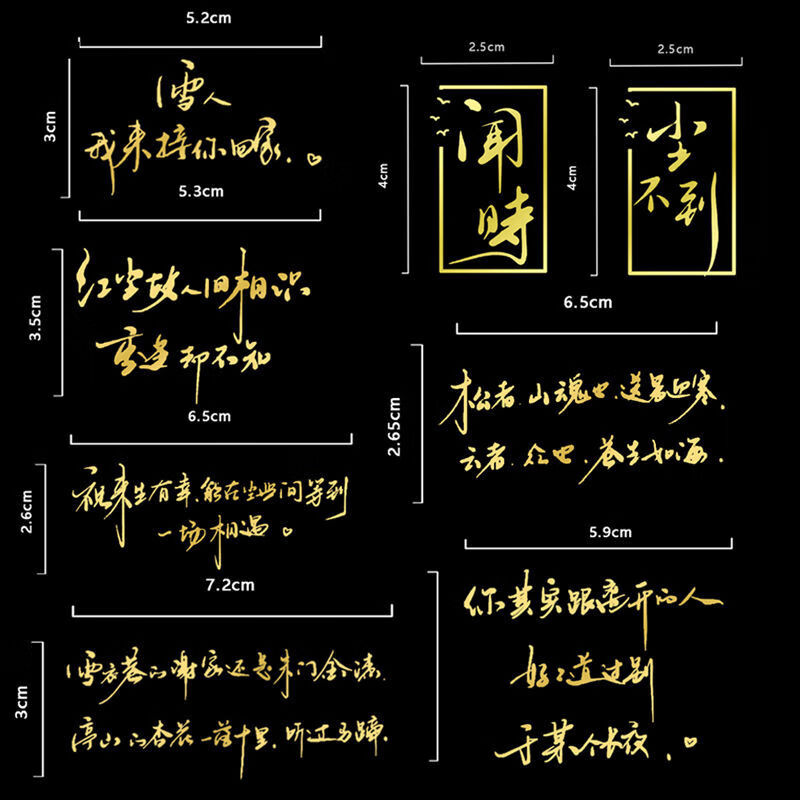 5.2cm
3cm
雪人
我来接你回家.
2.5cm
4cm
闻
時
2.5cm
4cm
尘
不到
5.3cm
3.5cm
红尘故人旧相识
重逢却不知
6.5cm
2.65cm
松者.山魂也.送暑迎寒.
云者.众也.苍生如海.
6.5cm
2.6cm
祝来生有幸.能在尘世间等到
一场相遇。
5.9cm
你其实跟离开的人
好好道过别
于某个长夜.
7.2cm
3cm
雪衣巷的谢家还是朱门金漆.
亭山的杏花一落十里.听过马蹄.